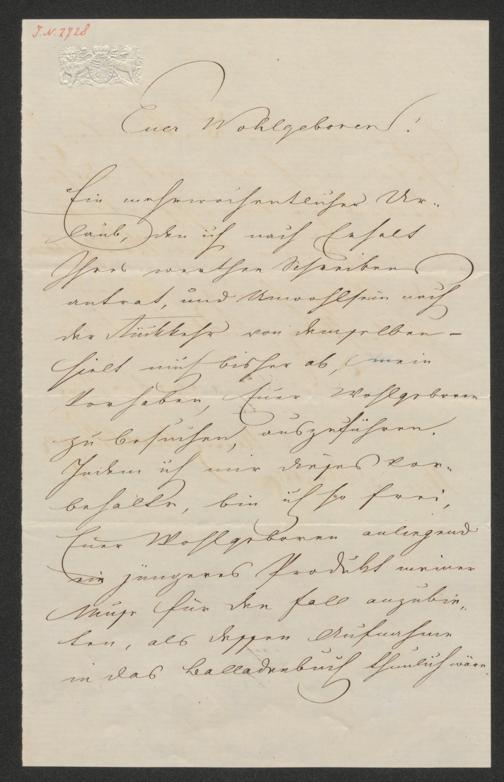 J.N. 2728
Euer Wohlgeboren!
Ein mehrwöchentlicher Ur-
laub, den ich nach Erhalt
Ihres werthen Schreibens
antrat, und Unwohlsein nach
der Rückkehr von demselben -
hielt mich bisher ab, mein
Vorhaben, Euer Wohlgeboren
zu besuchen, auszuführen.
Indem ich mir dieses vor-
behalte, bin ich so frei,
Euer Wohlgeboren anliegend
ein jüngeres Produkt meiner
Muse für den Fall anzubie-
ten, als dessen Aufnahme
in das Balladenbuch thunlich wäre.